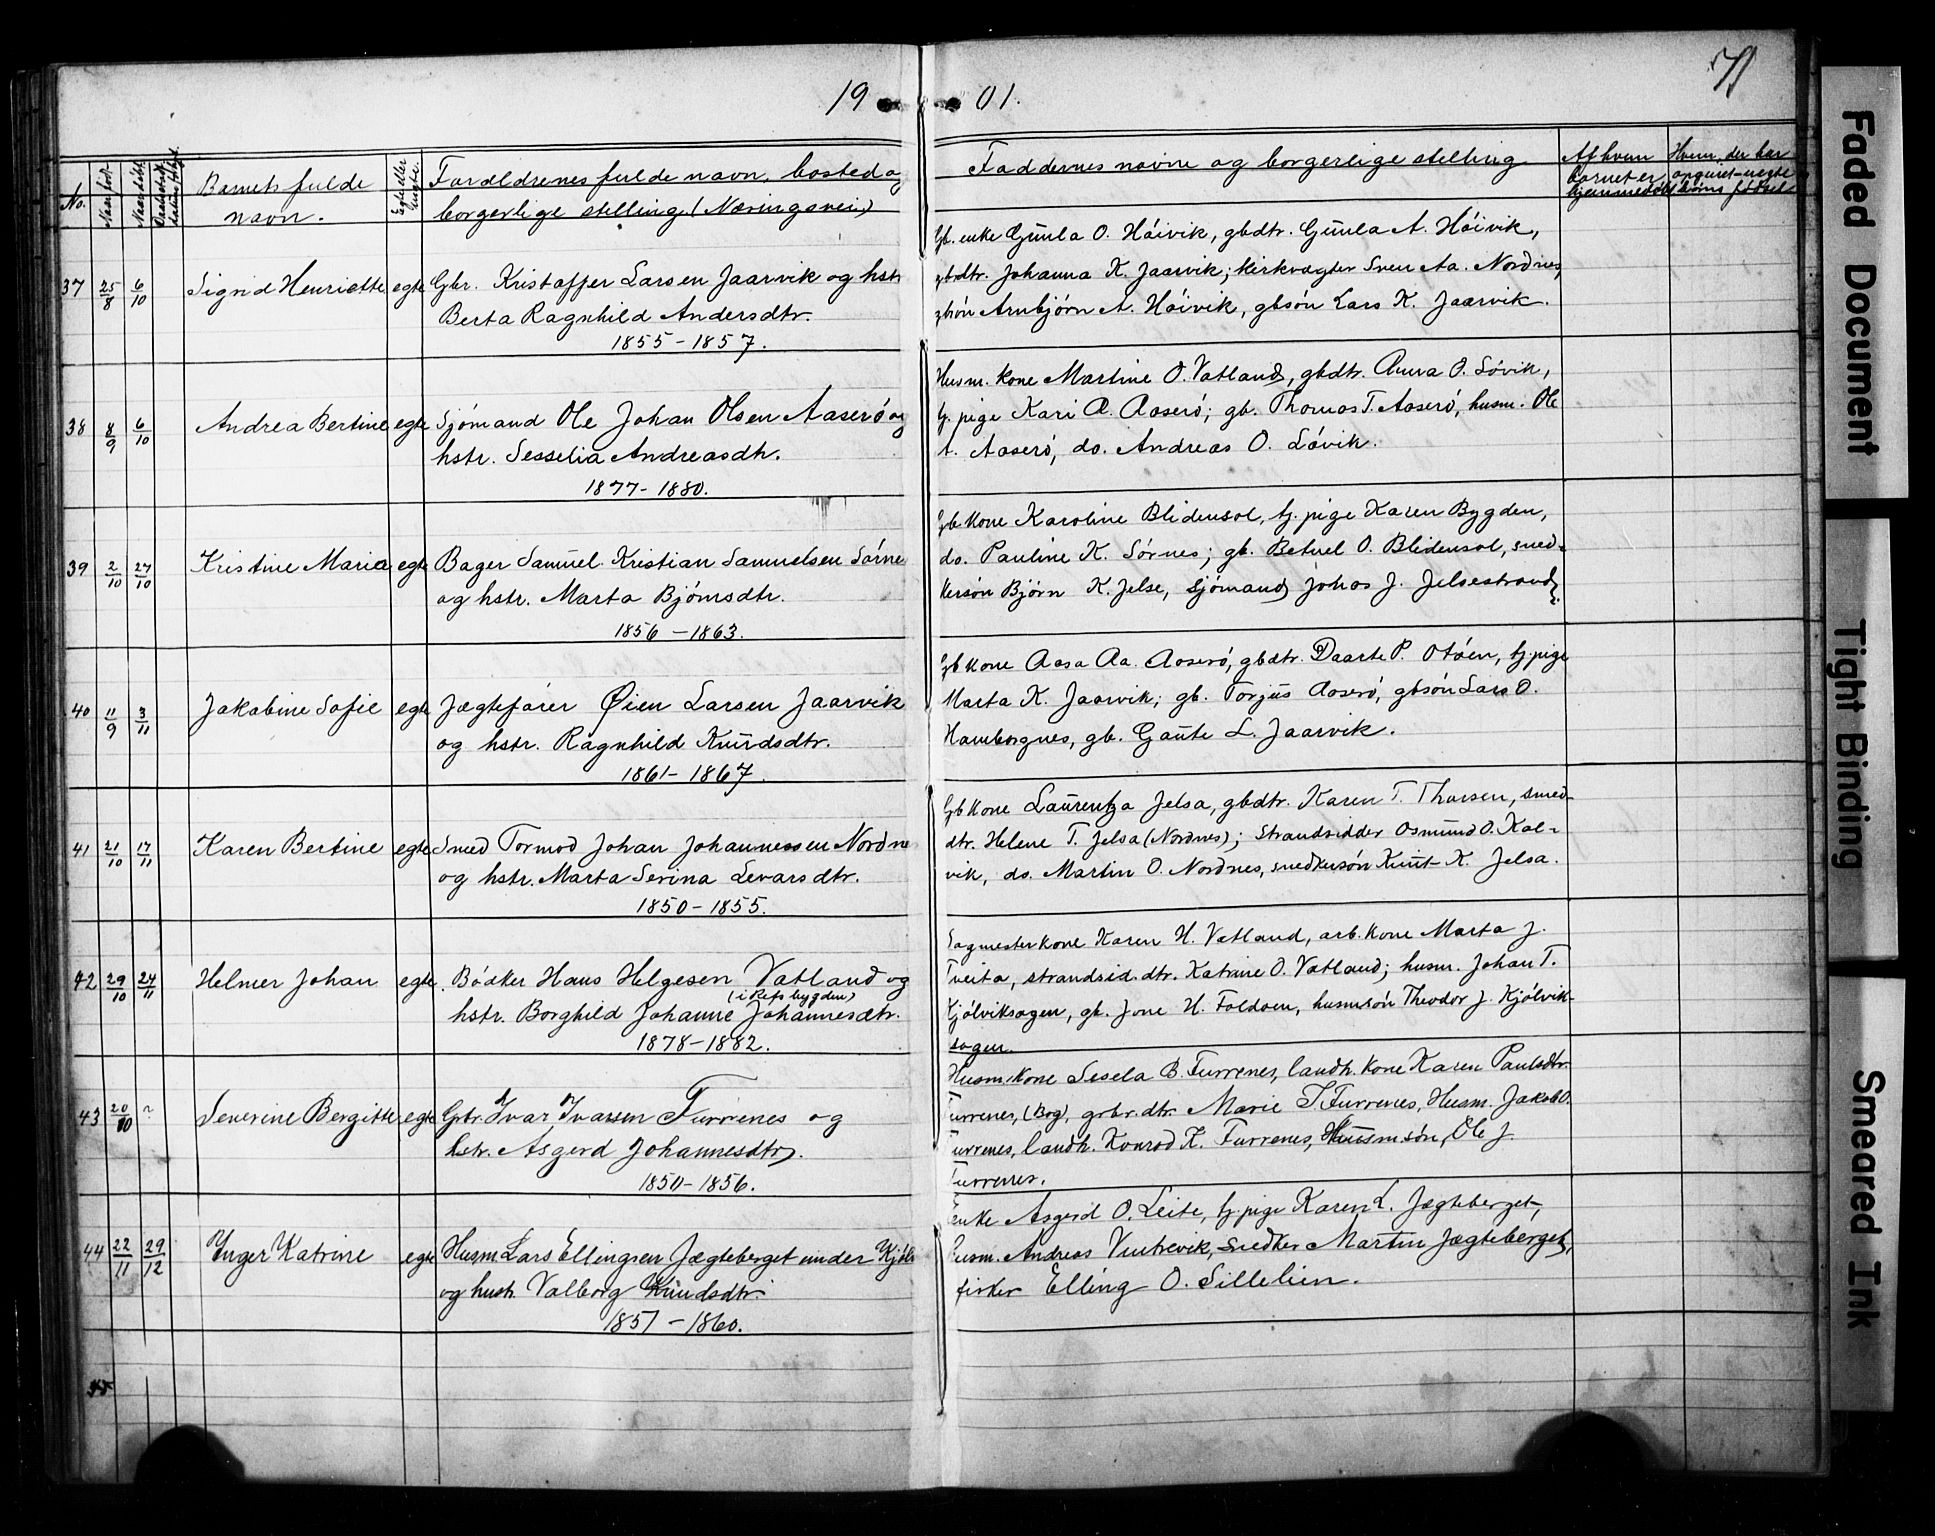 19 01.
71
No.
Barnets fulde
navn.
Egte eller
uegte.
Forældrenes fulde navn, bosted og
borgerlige stelling (Næringsvei.)
Faddernes navne og borgerlige stelling
Af hvem
barnet er
hjemmedøbt
Hvem der har
opgivet uegte
børns fødsel
37 25/8 6/10 Sigrid Henriette egte Gbr. Kristoffer Larsen Jaarvik og hstr
Berta Ragnhild Andersdtr.
1855-1857.
Gb. enke Gunla O. Höivik, gbdtr. Gunla A. Höivik,
gbdtr. Johanna K. Jaarvik; kirkvægter Sven Aa. Nordnes,
gbsön Arnbjörn A. Höivik, gbsön Lars K. Jaarvik.
38 8/9 6/10 Andrea Bertine egte Sjömand Ole Johan Olsen Aaserö og
hstr. Sesselia Andreasdtr.
1877-1880.
Husm. kone Martine O. Vatland, gbdtr. Anna O. Lövik,
tj. pige Kari A. Aaserö; gb. Thomas T. Aaserö, husm. Ole
T. Aaserö, do. Andreas O. Lövik.
39 2/10 27/10 Kristine Maria egte Bager Samuel Kristian Samuelsen Sörne
og hstr. Marta Björnsdtr.
1856-1863.
Gb kone Karoline Blidensol, tj. pige Karen Bygden,
do. Pauline K. Sörnes; gb. Betuel O. Blidensol, sned-
kersön Björn K. Jelse, sjömand Johas J. Jelsestrand.
40 11/9 3/11 Jakobine Sofie egte Jægtefører Øien Larsen Jaarvik
og hstr. Ragnhild Knudsdtr.
1861-1867.
Gb kone Aasa Aa. Aaserö, gbdtr. Daarte P. Otöen, tj. pige
Marta K. Jaarvik; gb. Torjus Aaserö, gbsön Lars O.
Hamborgnes, gb. Gaute L. Jaarvik.
41 21/10 17/11 Karen Bertine egte Smed Tormod Johan Johannessen Nordne
og hstr. Marta Serina Levarsdtr.
1850-1855.
Gb kone Laurentza Jelsa, gbdtr. Karen T. Thorsen, smed-
dtr. Helene T. Jelsa (Nordnes); Strandsidder Osmund O. Kal-
vik, do. Martin O. Nordnes, snedkersön Knut K. Jelsa.
42 29/10 24/11 Helmer Johan egte Bödker Hans Helgesen Vatland og
(i Refs bygden)
hstr. Borghild Johanne Johannesdtr.
1878-1882.
Sagmesterkone Karen H. Vatland, arb. kone Marta J.
Tveita, strandsid. dtr. Katrine O. Vatland; husm. Johan T.
Kjölviksagen, gb. Jone H. Foldöen, husmsön Theodor J. Kjölvik-
sagen.
43 20/10 ? Severine Bergitte egte Gbr. Ivar Ivarsen Furrenes og
hstr. Asgerd Johannesdtr.
1850-1856.
Husm. kone Sesela B. Furrenes, landh. kone Karen Paulsdtr.
Furrenes, (Bog), grbr. dtr. Marie I. Furrenes, Husm. Jakob O.
Furrenes, landh. Konrad K. Furrenes, Husmsön, Ole J.
Furrenes.
44 22/11 29/12 Inger Katrine egte Husm. Lars Ellingsen Jægteberget under Kjölv
og hustr. Valborg Knudsdtr.
1857-1860.
Enke Asgerd O. Leite, tj. pige Karen L. Jægteberget,
Husm. Andreas Vintrevik, Snedker Martin Jægteberget,
fisker Elling O. Sillelien.
45
Faded Document
Tight Binding
Smeared Ink